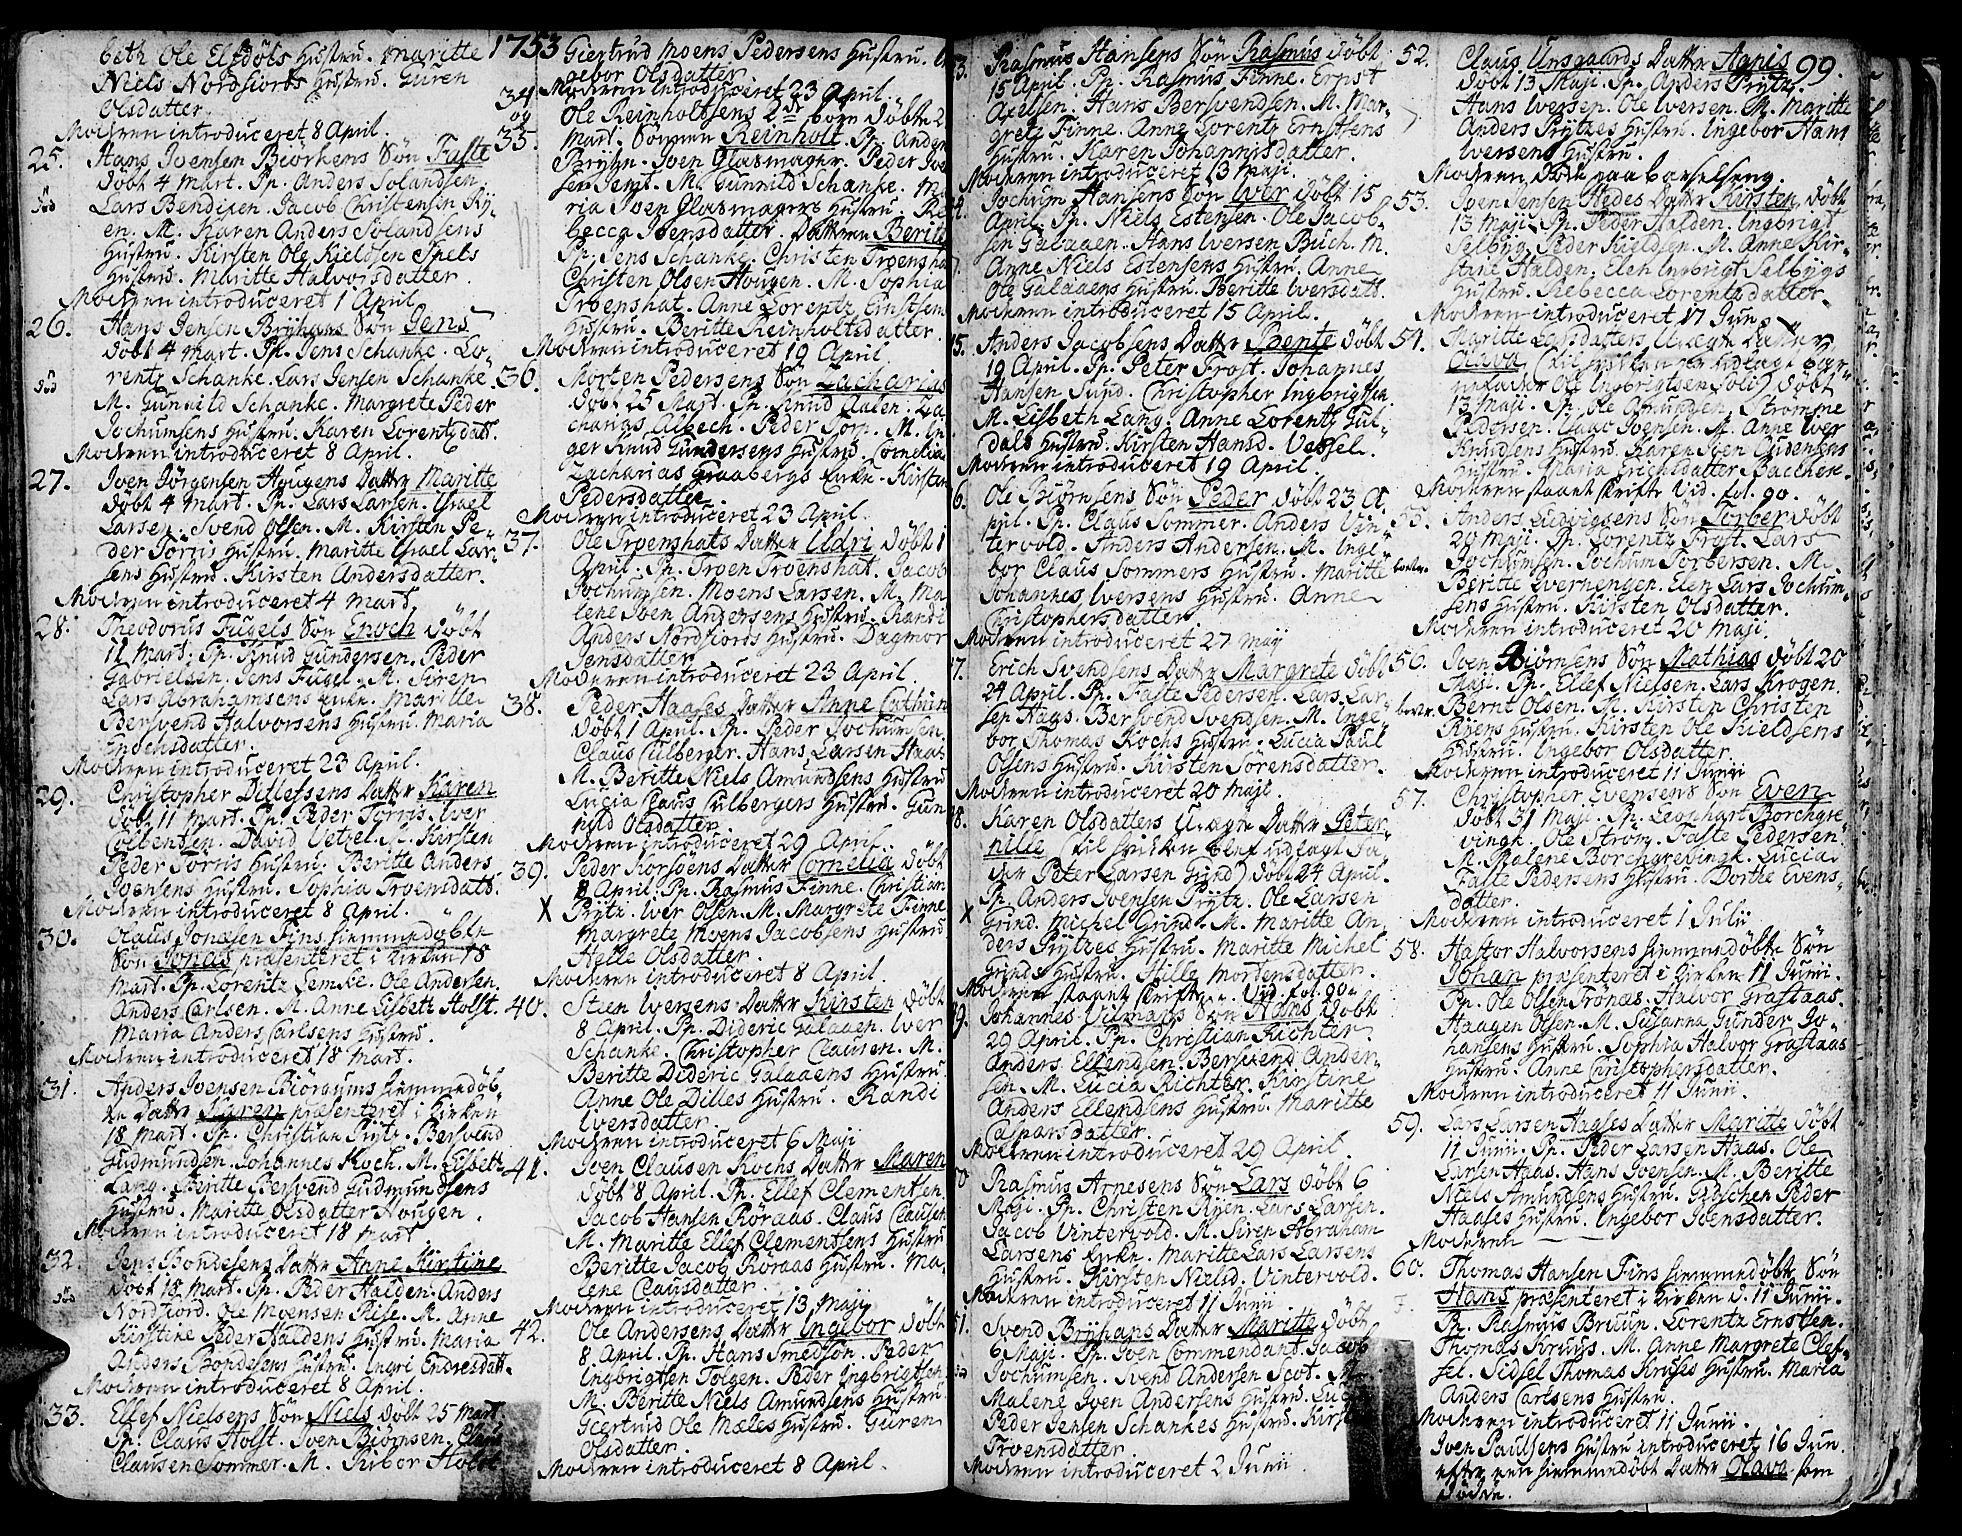 beth Ole Elfdöls Hustru. Maritte
Niels Nordfiords Hustru. Guren
Olsdatter.
Modren introduceret 8 April.
25. Hans Joensen Biörkens Sön Faste
döbt 4 Mart. Pp. Anders Solandsen
död Lars Bendixen. Jacob Christensen Ry-
en. M. Karen Anders Solandsens
Hustru. Kirsten Ole Kieldsen Spels
Hustru. Maritte Halvorsdatter.
Modren introduceret 1 April.
26. Hans Jensen Bryhans Sön Jens
döbt 4 Mart. Pp. Jens Schanke. Lo-
död rentz Schanke. Lars Jensen Schanke.
M. Gunnild Schanke. Margrete Peder
Jochumsens Hustru. Karen Lorentzdatt.
Modren introduceret 8 April.
27. Joen Jörgensen Hougens Datter Maritte
döbt 4 Mart. Pp. Lars Larsen. Israel
Larsen. Svend Olsen. M. Kirsten Pe-
der Torris Hustru. Maritte Israel Lar-
sens Hustru. Kirsten Andersdatter.
Modren introduceret 4 Mart.
28. Theodorus Fugels Sön Enoch döbt
11 Mart. Pp. Knud Gundersen. Peder
Gabrielsen. Jens Fugel. M. Siren
Lars Abrahamsens Enke. Maritte
Bersvend Halvorsens Hustru. Maria
Enochsdatter.
Modren introduceret 23 April.
29. Christopher Detlefsens Datter Karen
döbt 11 Mart. Pp. Peder Torris. Iver
Colbentsen. David Vetzel. M. Kirsten
Peder Torris Hustru. Beritte Anders
Joensens Hustru. Sophia Troensdatt.
Modren introduceret 8 April.
30. Olaus Jonæsen Fins hiemmedöbte
Sön Jonas præsenteret i Kirken 18
Mart. Pp. Lorentz Lemke. Ole Andersen.
Anders Carlsen. M. Anne Lisbeth Holst.
Maria Anders Carlsens Hustru.
Modren introduceret 18 Mart.
31. Anders Joensen Biörgums hiemmedöb-
te Datter Karen præsenteret i Kirken
18 Mart. Pp. Christian Prytz. Bersvend
Gudmundsen. Johannes Koch. M. Lisbeth
Lang. Beritte Bersvend Gudmundsens
Hustru. Maritte Olsdatter Hougen.
Modren introduceret 18 Mart
32. Jens Bondesens Datter Anne Kirstine
död döbt 18 Mart. Pp. Peder Halden. Anders
Nordfiord. Ole Moensen Riise. M. Anne
Kirstine Peder Haldens Hustru. Maria
Anders Bondesens Hustru. Ingri Endresdatt.
Modren introduceret 8 April.
33. Ellef Nielsens Sön Niels döbt 25 Mart.
Pp. Claus Holst. Joen Biörnsen. Claus
Clausen Sommer. M. Holst
1753 Giertrud Moens Pedersens Hustru. In-
gebor Olsdatter
Modren introduceret 23 April.
34 og 35. Ole Reinholtsens 2de börn döbte 25
Mart. Sönnen Reinholt. Pp. Anders
Bryhn. Joen Glasmager. Peder Joen-
sen Sengt. M. Gunnild Schanke. Ma-
ria Joen Glasmagers Hustru. Re-
becca Joensdatter. Datteren Beritte
Pp. Jens Schanke. Christen Troenshat
Christen Olsen Hougen. M. Sophia
Troenshat. Anne Lorentz Ernstsens
Hustru. Beritte Reinholtsdatter.
Modren introduceret 19 April.
36. Morten Pedersens Sön Zacharias
döbt 25 Mart. Pp. Knud Aalen. Za-
charias Albech. Peder Torp. M. In-
ger Knud Gundersens Hustru. Cornelia
Zacharias Graabergs Enke. Kirsten
Pedersdatter
Modren introduceret 23 April.
37. Ole Troenshats Datter Uldri döbt 1
April. Pp. Troen Troenshat. Jacob
Jochumsen. Moens Larsen. M. Ma-
lene Joen Andersens Hustru. Randi
Anders Nordfiords Hustru. Dagmor
Jensdatter.
Modren introduceret 23 April.
38. Peder Haases Datter Anne Cathrin
döbt 1 April. Pp. Peder Jochumsen.
Claus Culberger. Hans Larsen Haas
M. Beritte Niels Amundsens Hustru
Lucia Claus Culbergers Hustru. Gun-
nild Olsdatter.
Modren introduceret 29 April.
39. Peder Korsöns Datter Cornelia döbt
8 April. Pp. Rasmus Finne. Christian
X Prytz. Iver Olsen. M. Margrete Finne
Margrete Moens Jacobsens Hustru
Helle Olsdatter.
Modren introduceret 8 April.
40. Steen Iversens Datter Kirsten döbt
8 April. Pp. Dideric Galaaen. Iver
Schanke. Christopher Clausen. M.
Beritte Dideric Galaaens Hustru.
Anne Ole Dilles Hustru. Randi
Iversdatter.
Modren introduceret 6 Maji
41. Joen Clausen Kochs Datter Maren
döbt 8 April. Pp. Ellef Clementsen.
Jacob Hansen Röraas. Claus Clausen
M. Maritte Ellef Clementsens Hustru
Beritte Jacob Röraas Hustru. Ma-
lene Clausdatter.
Modren introduceret 13 Maji
42. Ole Andersens Datter Ingebor döbt
8 April. Pp. Hans Smedson. Peder
Ingbrigtsen Tolgen. Peder Ingbrigtsen
M. Beritte Niels Amundsens Hustru
Giertrud Ole Mæles Hustru. Guren
Olsdatter.
Modren introduceret 8 April.
3. Rasmus Hansens Sön Rasmus döbt
15 April. Pp. Rasmus Finne. Ernst
Axelsen. Hans Bersvendsen. M. Mar-
grete Finne. Anne Lorentz Ernstsens
Hustru. Karen Johannisdatter.
Modren introduceret 13 Maji.
4. Jochum Hansens Sön Iver döbt 15
April. Pp. Niels Estensen. Ole Jacob-
sen Galaaen. Hans Iversen Buch. M.
Anne Niels Estensens Hustru. Anne
Ole Galaaens Hustru. Beritte Iversdatt.
Modren introduceret 15 April.
5. Anders Jacobsens Datter Bente döbt
19 April. Pp. Peter Frost. Johannes
Hansen Sund. Christopher Ingbrigtsen
M. Lisbeth Lang. Anne Lorentz Gul-
dals Hustru. Kirsten Hansd. Vessel.
Modren introduceret 19 April.
6. Ole Biörnsens Sön Peder döbt 23 A-
pril. Pp. Claus Sommer. Anders Vin-
tervold. Anders Andersen. M. Inge-
bor Claus Sommers Hustru. Maritte
Johannes Iversens Hustru. Anne
Christophersdatter.
Modren introduceret 27 Maji
7. Erich Svendsens Datter Margrete döbt
24 April. Pp. Faste Pedersen. Lars Lar-
sen Haas. Bersvend Svendsen. M. Inge-
bor Thomas Kochs Hustru. Lucia Paul
Olsens Hustru. Kirsten Sörensdatter.
Modren introduceret 20 Maji.
8. Karen Olsdatters Uægte Datter Peter-
nille (til hvilken blef udlagt Fa-
der Peter Larsen Grind) döbt 24 April.
Pp. Anders Joensen Prytz. Ole Larsen
X Grind. Michel Grind. M. Maritte An-
ders Prytzes Hustru. Maritte Michel
Grinds Hustru. Hille Mortensdatter.
Modren staaet skrifte. Vid fol. 90.
9. Johannes Vilmans Sön Hans döbt
29 April. Pp. Christian Richter.
Anders Ellendsen. Bersvend Ander-
sen. M. Lucia Richter. Kirstine
Anders Ellendsens Hustru. Maritte
Caspersdatter.
Modren introduceret 29 April.
0. Rasmus Arnesens Sön Lars döbt 6
Maji. Pp. Christen Ryen. Lars Larsen.
Jacob Vintervold. M. Siren Abraham
Larsens Enke. Maritte Lars Larsens
Hustru. Kirsten Nielsd. Vintervold.
Modren introduceret 11 Junii.
51. Svend Bryhans Datter Maritte döbt
6 Maji. Pp. Joen Commendant. Jacob
Jochumsen. Svend Andersen Scot. M.
Malene Joen Andersens Hustru.
Peder Jensen Schankes Hustru.
Troensdatter.
Modren introduceret 2 Junii
99.
52. Claus Unsgaards Datter Agnis
döbt 13 Maji. Pp. Anders Prytz.
Hans Iversen. Ole Iversen. M. Maritte
Anders Prytzes Hustru. Ingebor Hans
Iversens Hustru.
Modren döde paa barselseng.
53. Joen Jensen Hedes Datter Kirsten döbt
13 Maji. Pp. Peder Halden. Ingbrigt
Selbyg. Peder Kieldsen. M. Anne Kir-
stine Halden. Elen Ingbrigt Selbygs
Hustru. Rebecca Lorentzdatter.
Modren introduceret 17 Jun.
54. Maritte Larsdatters Uægte Datter
Olava (til hvilken er udlagt Bar-
nefader Ole Ingbrigtsen Soli) döbt
13 Maji. Pp. Ole Amundsen. Strömme
Pedersen. Isaac Joensen. M. Anne Iver
Knudsens Hustru. Karen Joen Eridenkens
Hustru. Maria Erichsdatter Bacchen.
Modren staaet skrifte Vid. fol. 90.
55. Anders Ludvigsens Sön Torber döbt
20 Maji. Pp. Lorentz Frost. Lars
Jochumsen. Jochum Torbersen. M.
Beritte Evernengen. Elen Lars Jochum-
sens Hustru. Kirsten Olsdatter.
Modren introduceret 20 Maji.
56. Joen Biörnsens Sön Mathias döbt 20
Maji. Pp. Ellef Nielsen. Lars Krogen.
Bernt Olsen. M. Kirsten Christen
Ryens Hustru. Kirsten Ole Kieldsens
Hustru. Ingebor Olsdatter.
Modren introduceret 11 Junii
57. Christopher Evensens Sön Even
döbt 31 Maji. Pp. Leonhart Borchgre-
vingk. Ole Ström. Faste Pedersen.
M. Malene Borchgrevingk. Lucia
Faste Pedersens Hustru. Dorthe Evens-
datter.
Modren introduceret 1 Julii
58. Hastor Halvorsens hiemmedöbte Sön
Johan præsenteret i Kirken 11 Junii.
Pp. Ole Olsen Trönæs. Halvor Grastaas.
Haagen Olsen. M. Susanna Gunder Jo-
hansens Hustru. Sophia Halvor Grastaas
Hustru. Anne Christophersdatter.
Modren introduceret 11 Junii.
59. Lars Larsen Haases Datter Maritte döbt
11 Junii. Pp. Peder Larsen Haas. Ole
Larsen Haas. Hans Joensen. M. Beritte
Niels Amundsens Hustru. Gidschen Peder
Haases Hustru. Ingebor Joensdatter.
Modren
60. Thomas Hansen Fins hiemmedöbte Sön
Hans præsenteret i Kirken d. 11 Junii.
Pp. Rasmus Bruun. Lorentz Ernstsen.
Thomas Kruus. M. Anne Margrete Clef-
fel. Sidsel Thomas Kruses Hustru. Maria
Anders Carlsens Hustru.
Modren introduceret 11 Junii.
Joen Paulsens Hustru introduceret 16 Jun.
efter een hiemmedöbt Datter Olava som
döde.